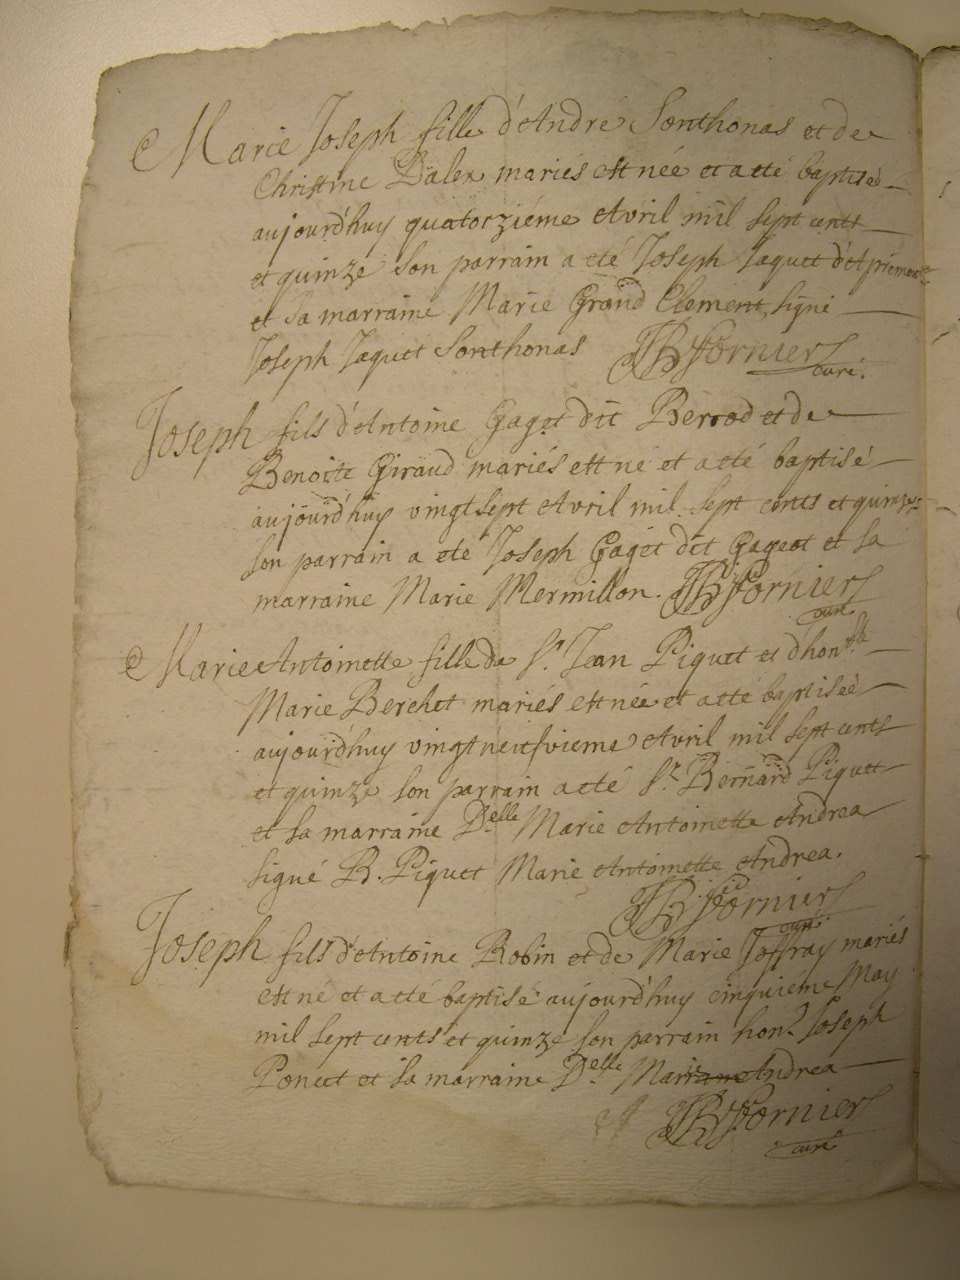 Marie Joseph fille d'André Sonthonas et de
Christine Dalex mariés est née et a eté baptiseé
aujourd'huy quatorziéme Avril mil sept cents
et quinze son parrain a eté Joseph Jaquet
et sa marraine Marie Grand Clement, signé
Joseph Jaquet Sonthonas JB Fornier curé.
Joseph fils d'Antoine Gaget dit Berrod et de
Benoite Giraud mariés est né et a eté baptisé
aujourd'huy vingt sept Avril mil sept cents et quinze
son parrain a eté Joseph Gaget dit Gageot et sa
marraine Marie Mermillon. JB Fornier curé
Marie Antoinette fille du Sr. Jean Piquet et d'honble
Marie Berchet mariés est née et a eté baptiseé
aujourd'huy vingt neufvieme Avril mil sept cents
et quinze son parrain a eté Sr. Bernard Piquet
et sa marraine Delle Marie Antoinette Andrea
signé B. Piquet Marie Antoinette Andrea.
JB Fornier curé
Joseph fils d'Antoine Robin et de Marie Joffray mariés
est né et a eté baptisé aujourd'huy cinquiéme May
mil sept cents et quinze son parrain hon. Joseph
Poncet et sa marraine Delle Andrea
JB Fornier
curé